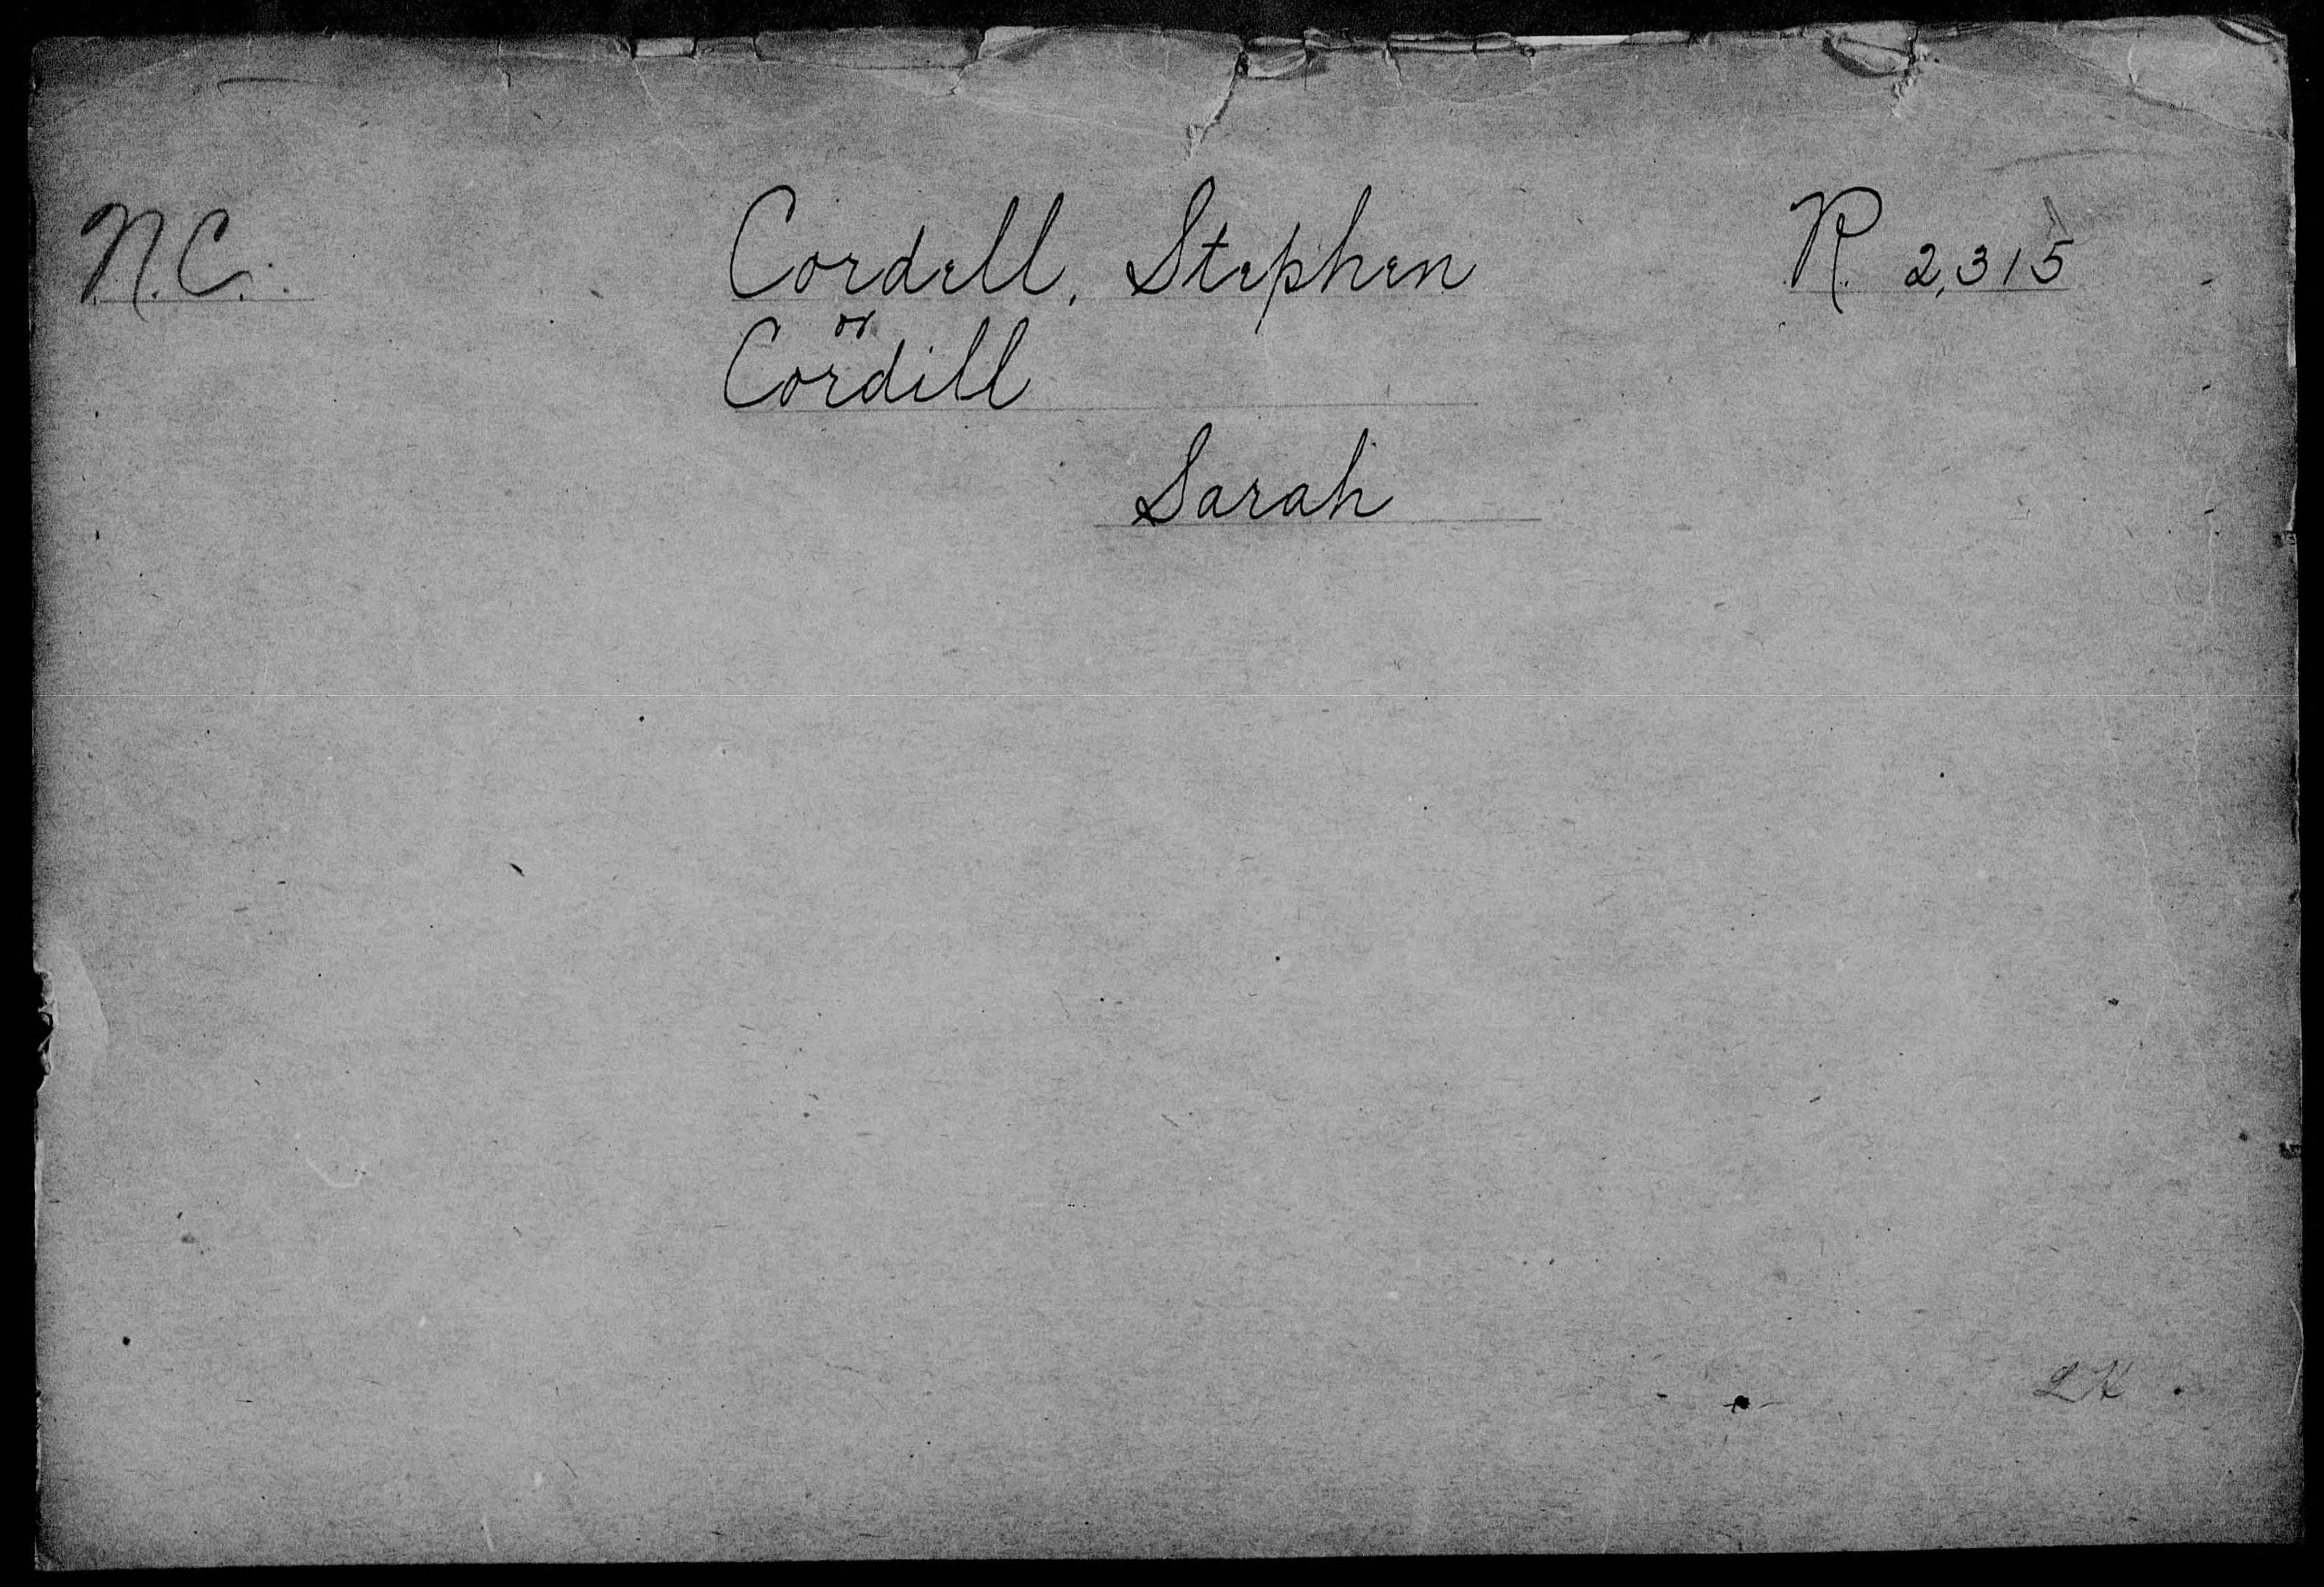 N.C. Cordell, Stephen R. 2,315
or
Cordill
Sarah